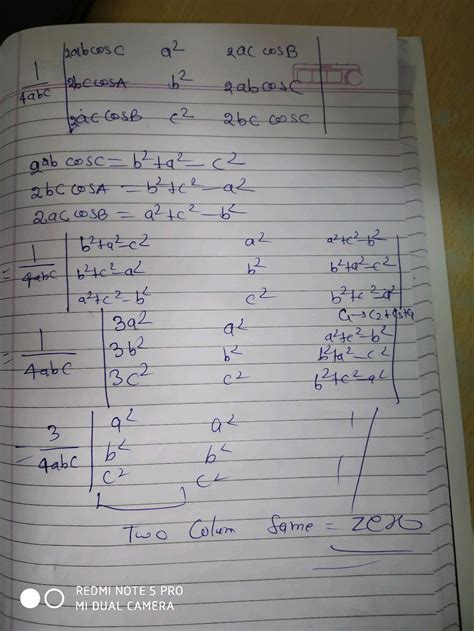 1/4abc | 2abcosC a² 2ac cosB |
| 2bc cosA b² 2abcosC |
| 2ac cosB c² 2bc cosC |
2ab cosC = b²+a²-c²
2bc cosA = b²+c²-a²
2ac cosB = a²+c²-b²
= 1/4abc | b²+a²-c² a² a²+c²-b² |
| b²+c²-a² b² b²+a²-c² |
| a²+c²-b² c² b²+c²-a² |
C₁→C₂+C₃+C₁
= 1/4abc | 3a² a² a²+c²-b² |
| 3b² b² b²+a²-c² |
| 3c² c² b²+c²-a² |
= 3/4abc | a² a² |
| b² b² |
| c² c² |
Two Colum Same = zero
REDMI NOTE 5 PRO
MI DUAL CAMERA